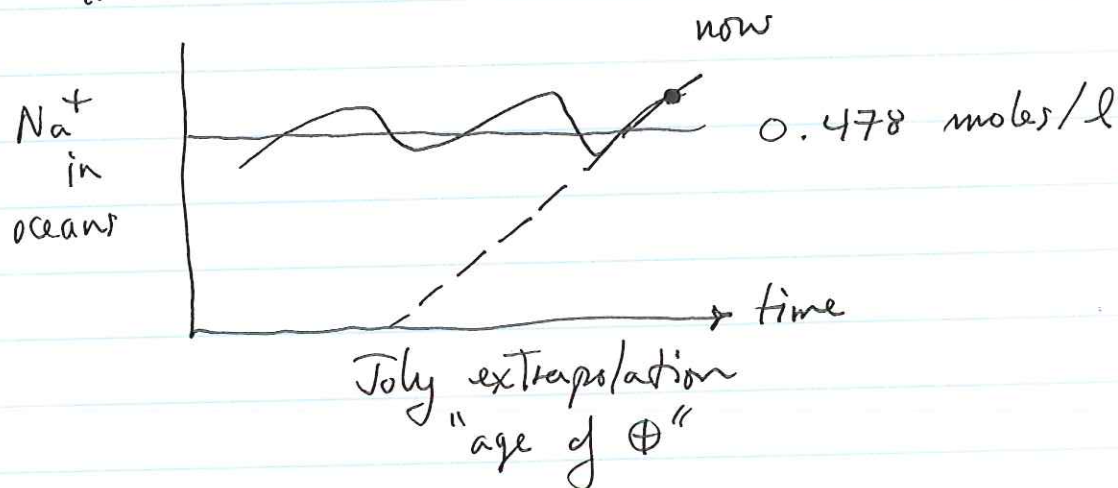 now
Na⁺
in
oceans
0.478 moles/l
time
Joly extrapolation
"age of ⊕"